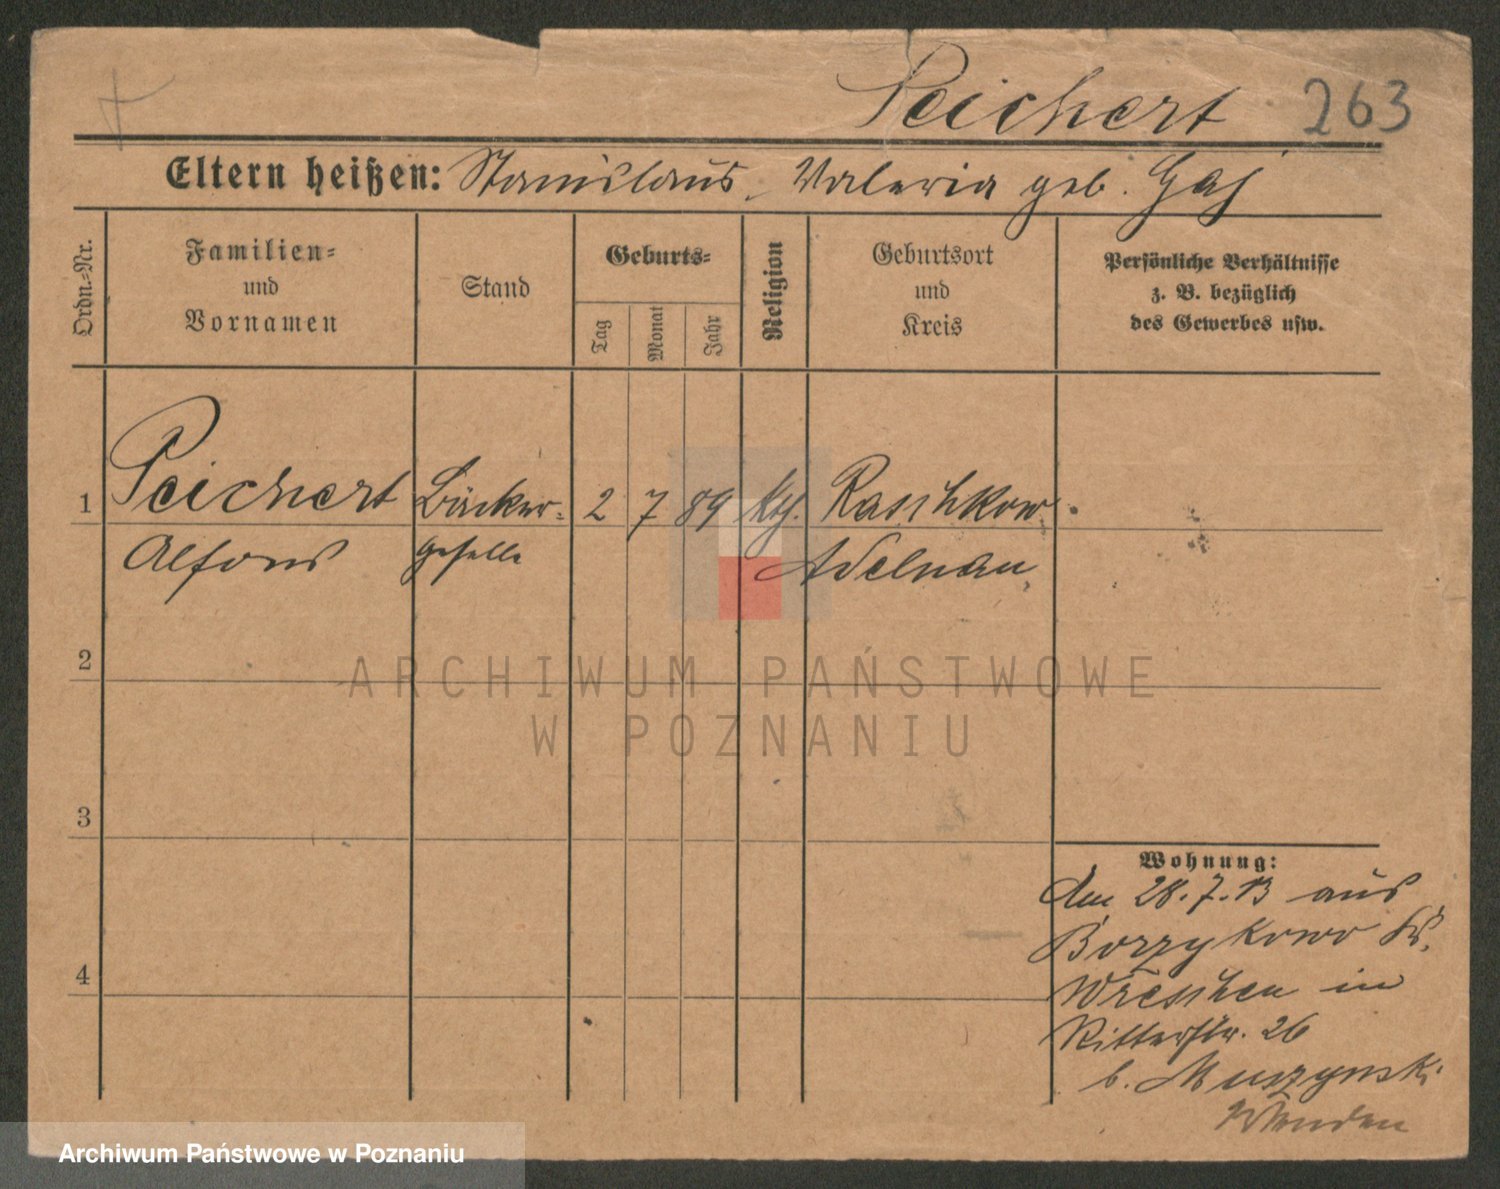 Peichert 263
Eltern heißen: Stanislaus, Valeria geb. Gaj
Ordn.-Nr.
Familien-
und
Vornamen
Stand
Geburts-
Tag
Monat
Jahr
Religion
Geburtsort
und
Kreis
Persönliche Verhältnisse
z. B. bezüglich
des Gewerbes usw.
1 Peichert Bäcker- 2 7 89 kth. Raschkow
Alfons geselle Adelnau
2
3
4
Wohnung:
Am 28.7.13 aus
Borzykowo Kr.
Wreschen in
Ritterstr. 26
b. Muszynski
Wenden
ARCHIWUM PAŃSTWOWE
W POZNANIU
Archiwum Państwowe w Poznaniu